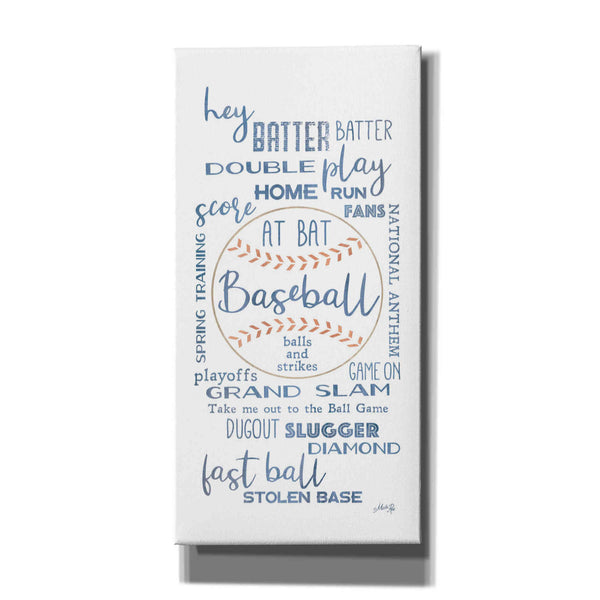 hey
BATTER BATTER
DOUBLE play
HOME RUN
score FANS
AT BAT
SPRING TRAINING
Baseball
NATIONAL ANTHEM
balls
and
strikes
playoffs GAME ON
GRAND SLAM
Take me out to the Ball Game
DUGOUT SLUGGER
DIAMOND
fast ball
STOLEN BASE